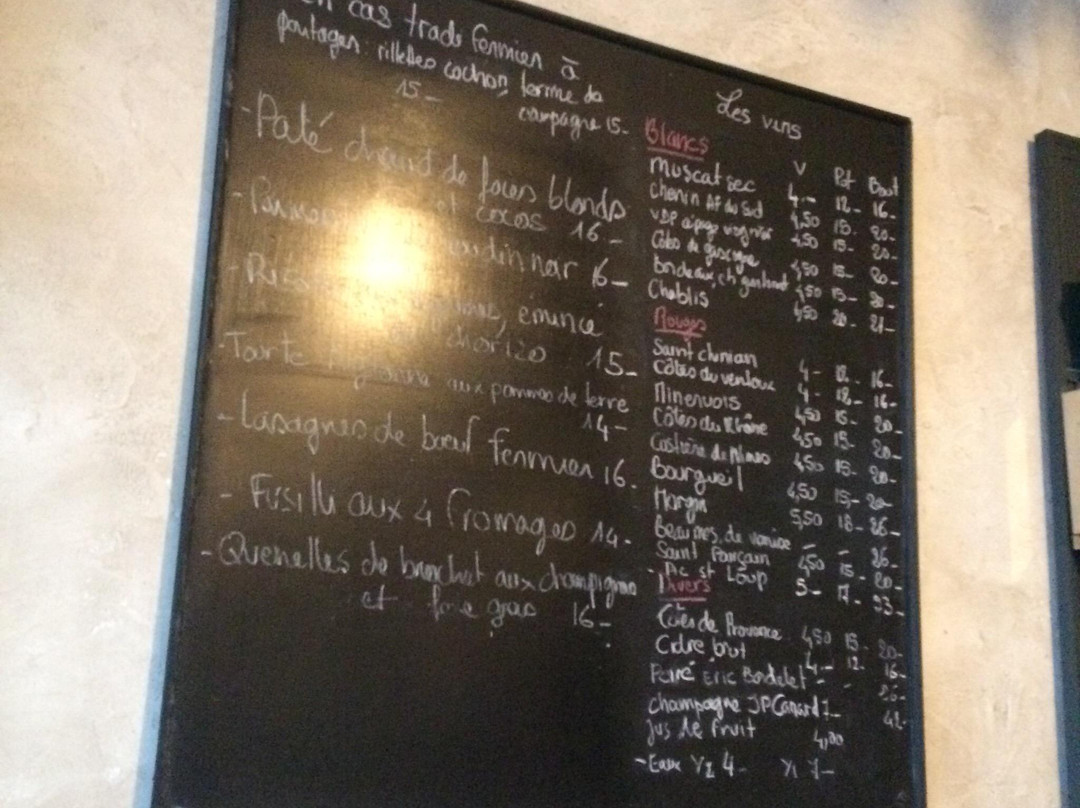 cas trad fermier à
partager: rillettes cochon, terrine de
15- campagne 15-
- Pâté chaud de foies blonds
et cocos 16-
boudin noir 16-
émincé
chorizo 15-
- Tourte aux pommes de terre
14-
- Lasagnes de bœuf fermier 16-
- Fusilli aux 4 fromages 14-
- Quenelles de brochet aux champignons
et foie gras 16-
Les vins
Blancs
V Pt Bout
muscat sec 4.- 12- 16-
chenin AF du Sud 4,50 15- 20-
VDP viognier 4,50 15- 20-
Côtes de gascogne 4,50 15- 20-
bordeaux, ch 4,50 15- 20-
Chablis 4,50 20- 21-
Rouges
Saint chinian 4- 12- 16-
Côtes du ventoux 4- 12- 16-
Minervois 4,50 15- 20-
Côtes du Rhône 4,50 15- 20-
Costière de Nîmes 4,50 15- 20-
Bourgueil 4,50 15,- 20-
Morgon 5,50 18- 26-
beaumes. de venise - - 26-
Saint Pourçain 4,50 15- 20-
- Pic st Loup 5- 17- 23-
Divers
Côtes de Provence 4,50 15- 20-
Cidre brut 4- 12- 16-
Poiré Eric Bordelet - - 26-
champagne JP Canard 7- 42-
jus de fruit 4,00
- Eaux ½ 4- 1/1 7-